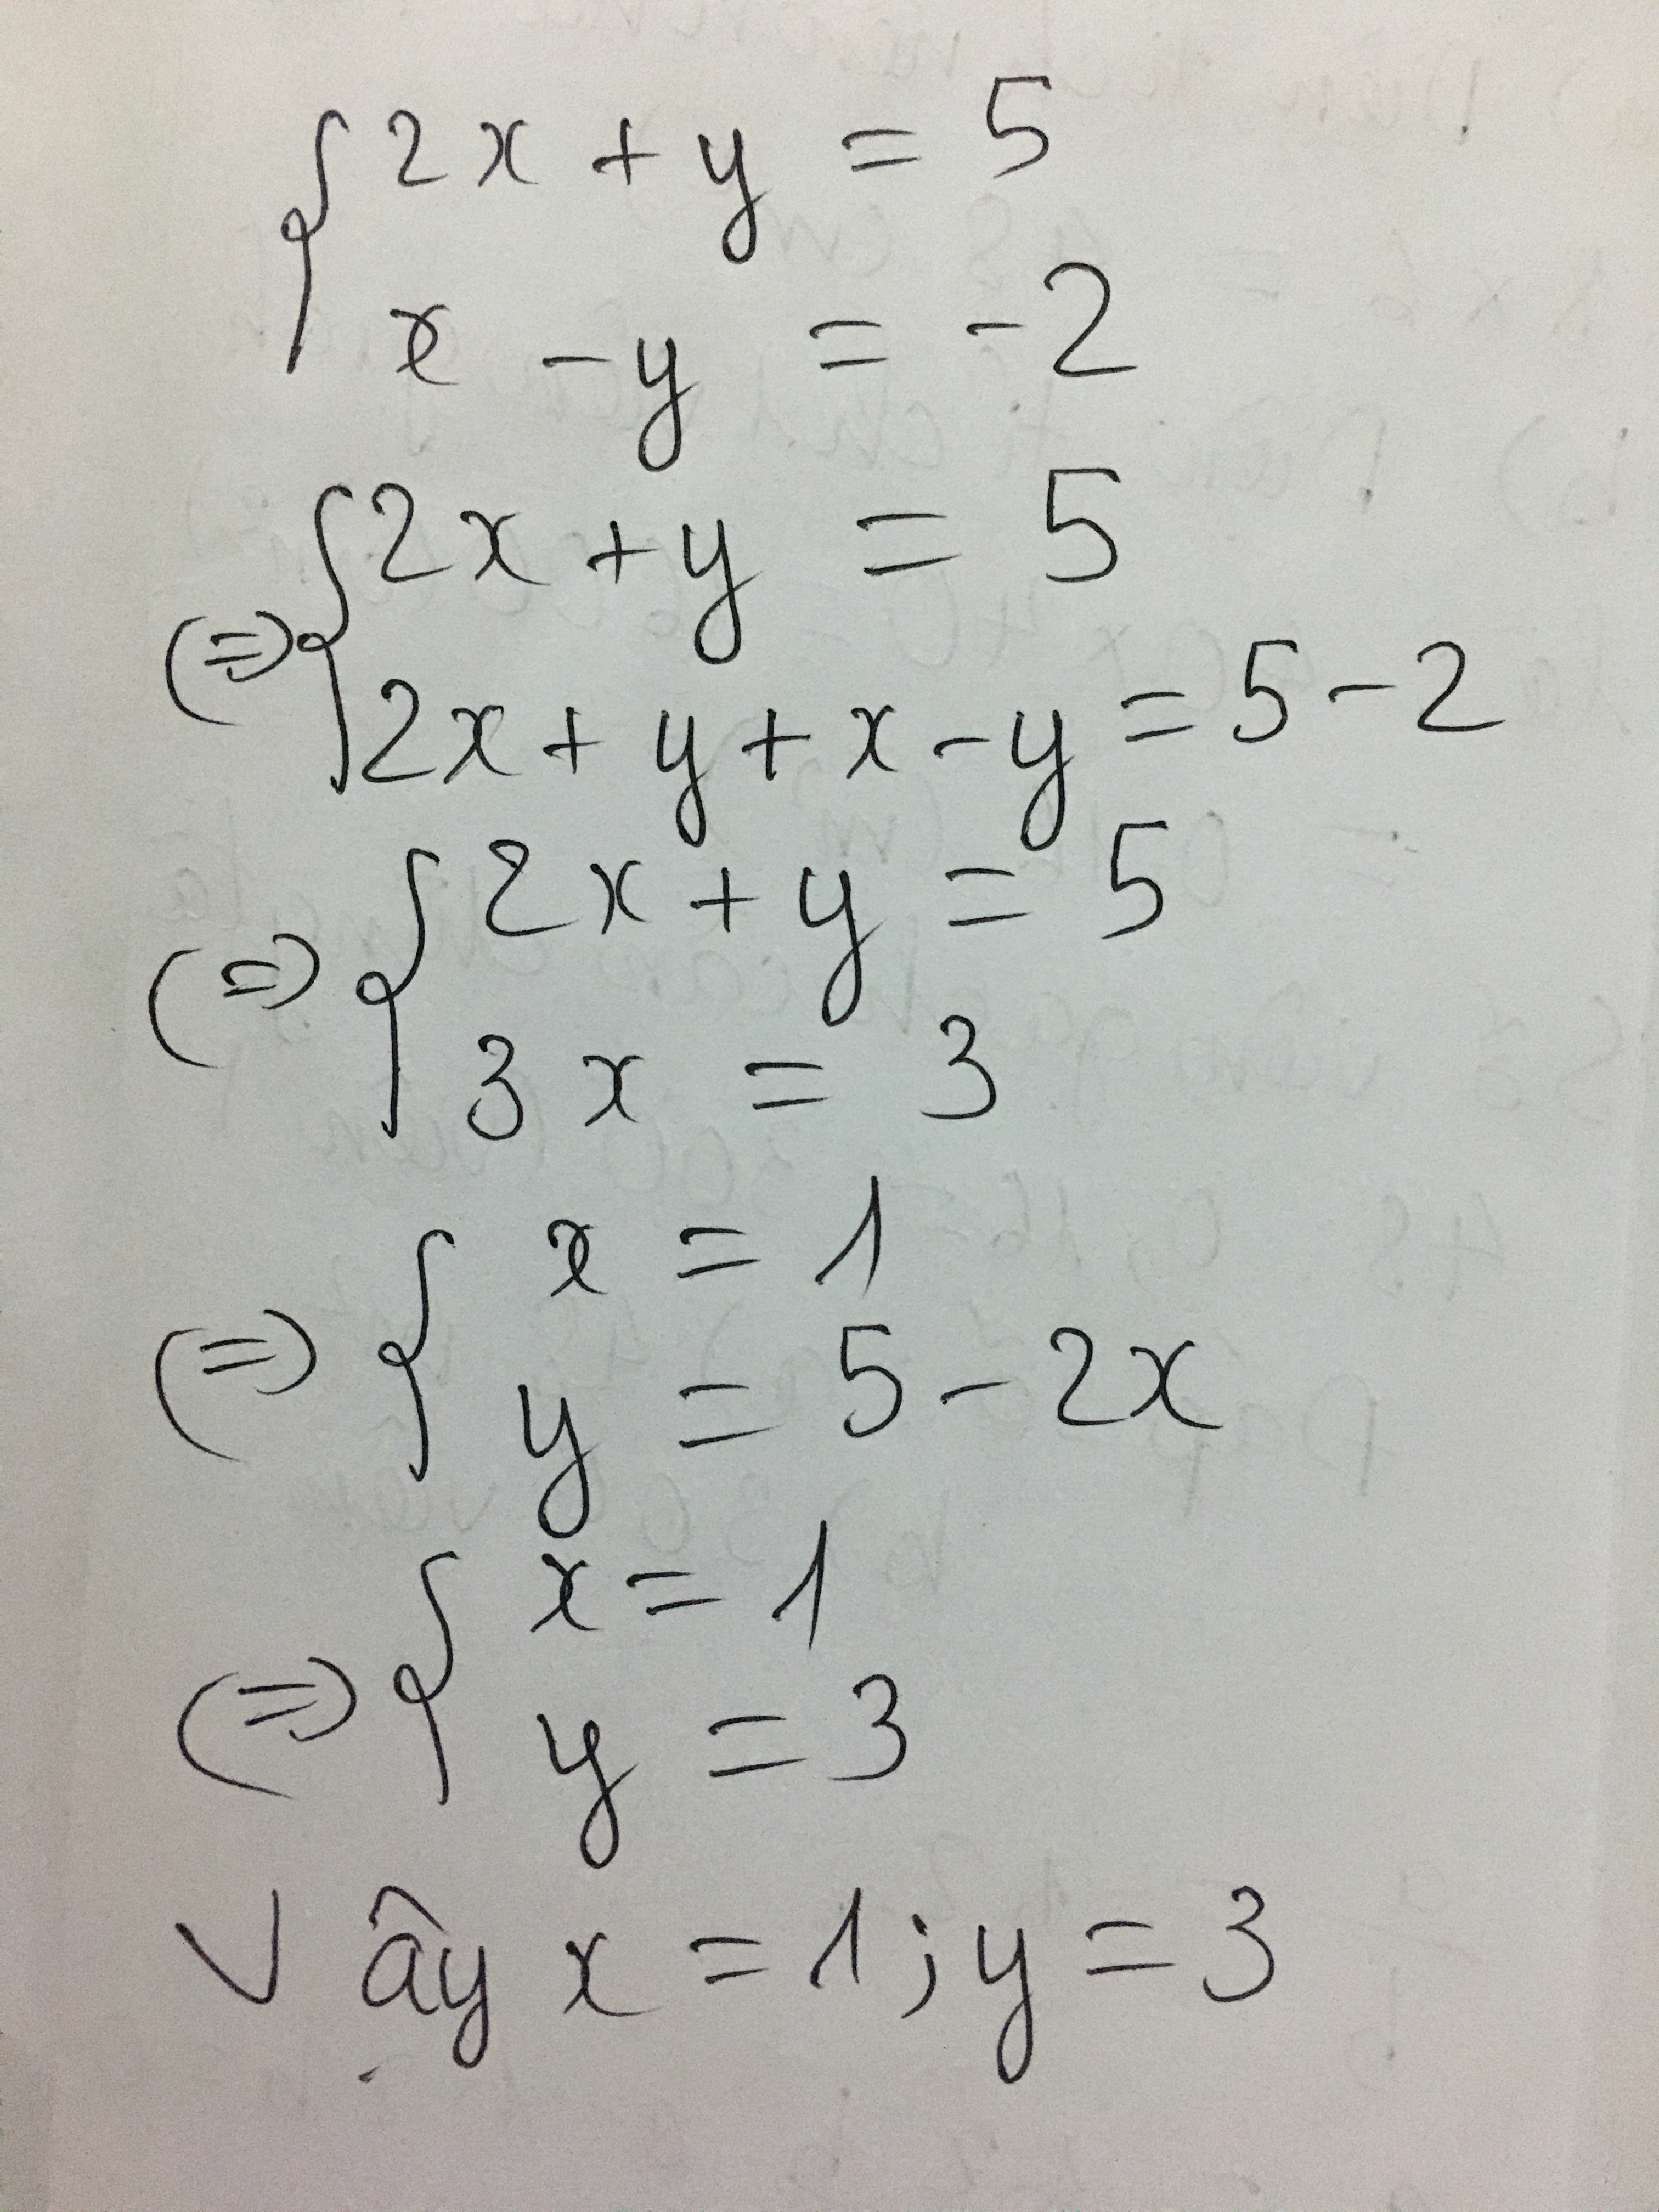 {2x + y = 5
x - y = -2
{2x + y = 5
(=) 2x + y + x - y = 5 - 2
{2x + y = 5
(=) 3x = 3
{x = 1
(=) y = 5 - 2x
{x = 1
(=) y = 3
Vậy x = 1; y = 3